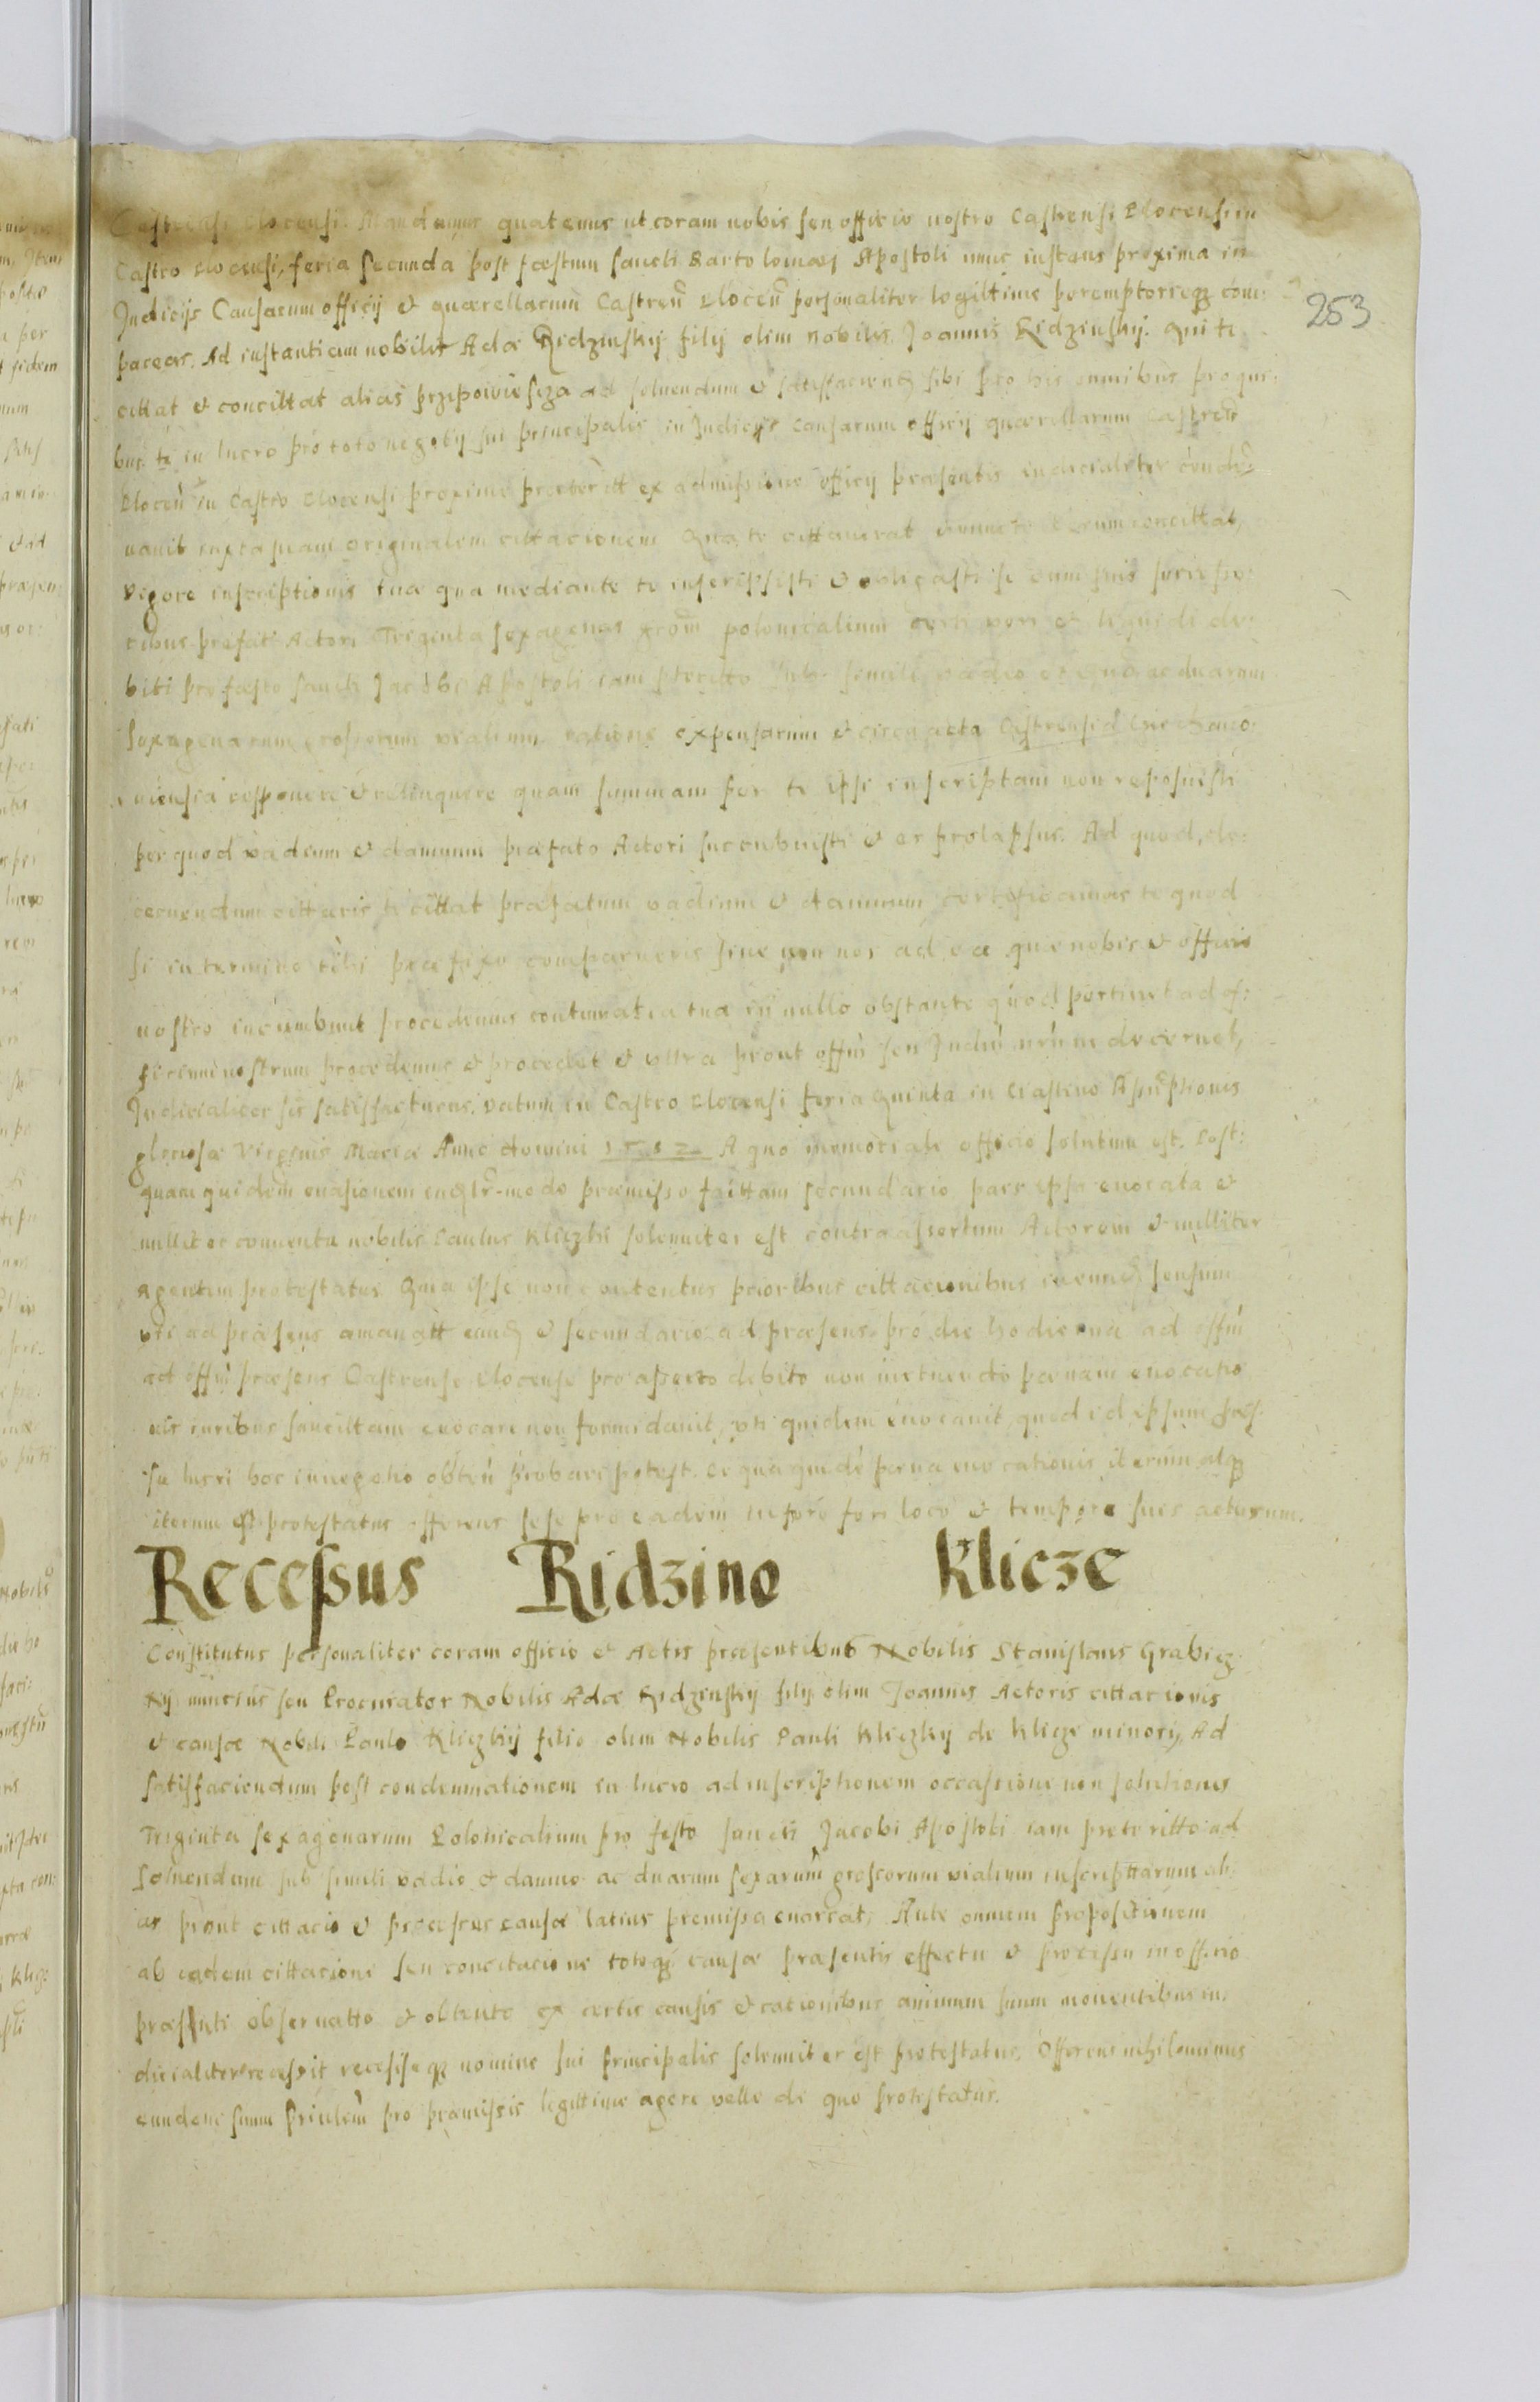 253
Castrensi Plocensi. Mandamus quatenus ut coram nobis seu officio nostro Castrensi Plocensi in
Castro Plocensi, feria secunda post festum sancti Bartolomaei Apostoli nunc instans proxima in
Judicijs Causarum officij et quaerellarum Castren Plocen personaliter legittime peremptorieqz com:
pareas. Ad instantiam nobilis Adae Ridzinskij filij olim nobilis Joannis Ridzinskij. Qui te
cittat et concittat alias przipowiesza ad soluendum et satisfaciend sibi pro his omnibus pro qui:
bus te in lucro pro toto negotij sui principalis in Judicijs causarum officij quaerellarum Castren
Plocen in Castro Plocensi proxime praeteritt ex admissione officij praesentis iudicialiter conde
nauit iuxta suam originalem cittacionem Qua te cittauerat iterum concittat,
vigore inscriptionis tuae qua mediante te inscripsisti et obligasti se cum suis successo:
ribus praefati Actori Triginta sexagenas grom polonicalium certi veri et liquidi de:
biti pro festo sancti Jacobi Apostoli iam pterito sub simili vadio et damno ac duarum
sexagenarum grossorum vialium ratione expensarum et circa acta Castrensia
reponere et relinquere quam summam per te ipsi inscriptam non reposuisti
per quod vadium et damnum praefato Actori succubuisti et es prolapsus. Ad quod
cittaris te cittat praefatum vadium et damnum certificamus te quod
si in termino tibi praefixo comparueris siue non nos ad ea que nobis et officio
nostro incumbunt procedemus contumatia tua in nullo obstante quod pertinet ad of:
ficium nostrum procedemus et procedet et ultra prout offm seu Judm nrum decernet,
Judicialiter sis satisfacturus. Datum in Castro Plocensi feria quinta in Crastino Assuptionis
gloriosae Virginis Mariae Anno domini 1582 A quo memoriale officio solutum est. Post:
quam quidem euasionem modo praemisso faittam secundario pars ipsa euocata et
nulliter conuenta nobilis Paulus Kliczki solenniter est contra assertum Actorem et nulliter
agentem protestatus Quia ipse non contentus prioribus cittacionibus sensum
ad praesens eund et secundario ad praesens pro die hodierna ad offm
ad offm praesens Castrense Plocense pro asserto debito non metuendo paenam euocatio
iuribus sancittam euocare non formidauit, uti quidem euocauit quod id ipsum
lucri hoc in negotio obten probari potest. De qua quide paena euocationis iterum atqz
iterum est protestatus offerens sese pro eadem in foro fori loco et tempore suis acturum.
Recessus Ridzino Klicze
Constitutus personaliter coram officio et Actis praesentibus Nobilis Stanislaus Grabiez
kij nuncius seu Procurator Nobilis Adae Ridzinskij filij olim Joannis Actoris cittacionis
et causae Nobili Paulo Kliczkij filio olim Nobilis Pauli Kliczkij de Klicze minori, Ad
satisfaciendum post condemnationem in lucro ad inscriptionem occassione non solutionis
Triginta sexagenarum Polonicalium pro festo sancti Jacobi Apostoli iam preteritto ad
soluendum sub simili vadio et damno ac duarum sexarum grossorum vialium inscripttarum ali:
as prout cittacio et processus causae latius premissa enarrat, Ante omnem propositionem
ab eadem cittacione seu concitacione totoqz causae praesentis effectu et processu in officio
praesenti obseruatto et obtento ex certis causis et rationibus animum suum mouentibus iu:
dicialiter recessit recessseqz nomine sui principalis solenniter est protestatus, Offerens nihilominus
eundem suum prinlem pro praemissis legittime agere velle de quo protestatur.